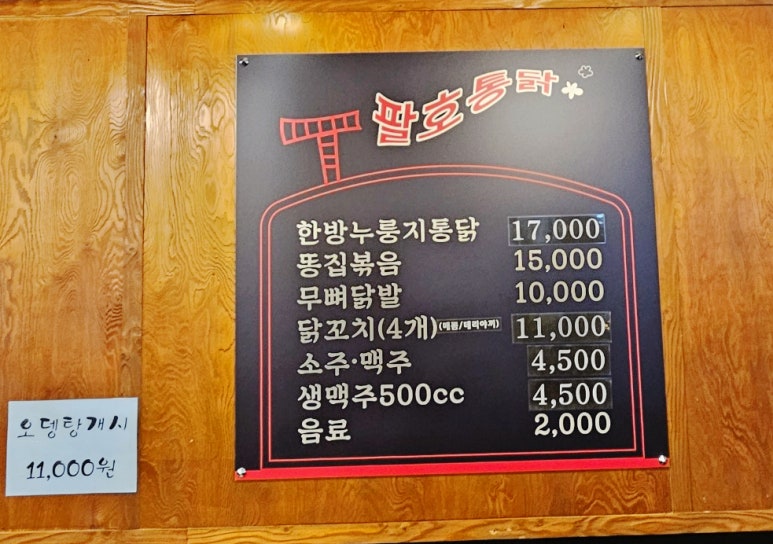 팔호통닭
한방누룽지통닭 17,000
똥집볶음 15,000
무뼈닭발 10,000
닭꼬치(4개)(매콤/데리야끼) 11,000
소주·맥주 4,500
생맥주500cc 4,500
음료 2,000
오뎅탕개시
11,000원